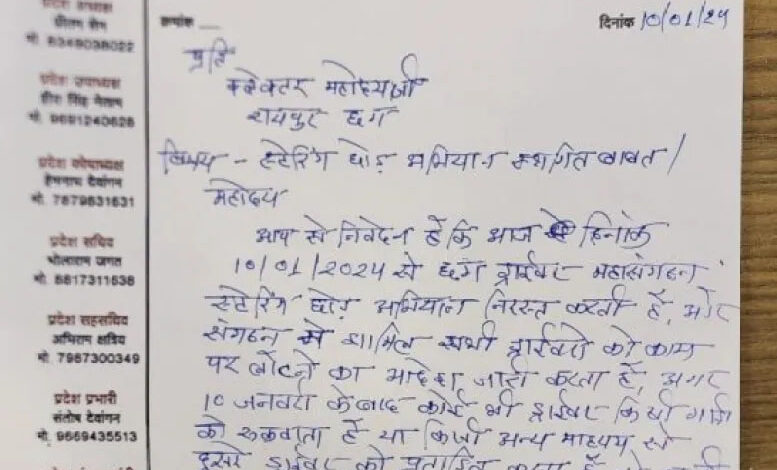 प्रदेश अध्यक्ष
प्रीतम सेन
मो. 8349038022
प्रदेश उपाध्यक्ष
हीरा सिंह नेताम
मो. 9691240628
प्रदेश कोषाध्यक्ष
हेमनाथ देवांगन
मो. 7879831631
प्रदेश सचिव
भोलाराम जगत
मो. 8817311638
प्रदेश सहसचिव
अभिराम क्षत्रिय
मो. 7987300349
प्रदेश प्रभारी
संतोष देवांगन
मो. 9669435513
क्रमांक
दिनांक 10/01/24
प्रति
कलेक्टर महोदय जी
रायपुर छग
विषय - स्टेरिंग छोड़ अभियान स्थगित बाबत /
महोदय
आप से निवेदन है कि आज दिनांक
10/01/2024 से छग ड्राईवर महासंगठन
स्टेरिंग छोड़ अभियान निरस्त करती है, और
संगठन मे शामिल सभी ड्राईवरो को काम
पर लौटने का आदेश जारी करता है, अगर
10 जनवरी के बाद कोई भी ड्राईवर किसी गाड़ी
को रुकवाता है या किसी अन्य माध्यम से
दुसरे ड्राईवर को प्रताड़ित करता है